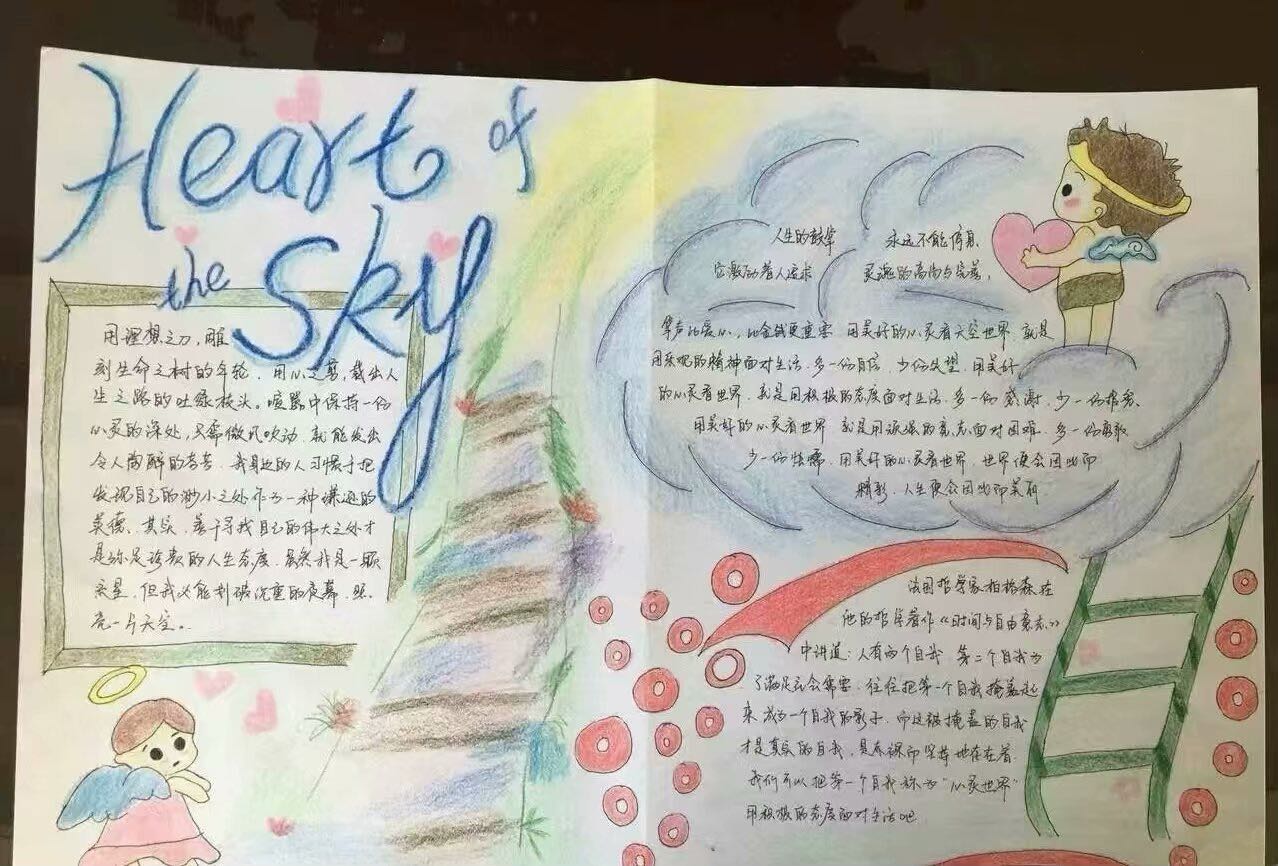 Heart of
the Sky
用理想之刀，雕
刻生命之树的年轮，用心之剪，裁出人
生之路的吐绿枝头。喧嚣中保持一份
心灵的深处，只需微风吹动，就能发出
令人陶醉的奇苦 我身边的人习惯于把
发现自己的渺小之处作为一种谦逊的
美德，其实，善于寻找自己的伟大之处才
是弥足珍贵的人生态度，虽然我是一颗
辰星，但我必能划破沉重的夜幕，照
亮一片天空。
人生的鼓掌 永远不能停息，
它激励着人追求 灵魂的高尚与完善，
掌声比爱心，比金钱更重要 用美好的心灵看天空世界，就是
用乐观的精神面对生活，多一份自信，少份失望，用美好
的心灵看世界，就是用积极的态度面对生活，多一份感谢，少一份指责，
用美好的心灵看世界 就是用顽强的意志面对困难，多一份勇敢
少一份怯懦，用美好的心灵看世界，世界便会因此而
精彩，人生便会因此而美丽
法国哲学家柏格森在
他的哲学著作《时间与自由意志》
中讲道：人有两个自我，第二个自我为
了满足社会需要，往往把第一个自我掩盖起
来 成为一个自我的影子，而这被掩盖的自我
才是真实的自我，是赤裸而坚持地存在着
我们可以把第一个自我称为“心灵世界”
用积极的态度面对生活吧